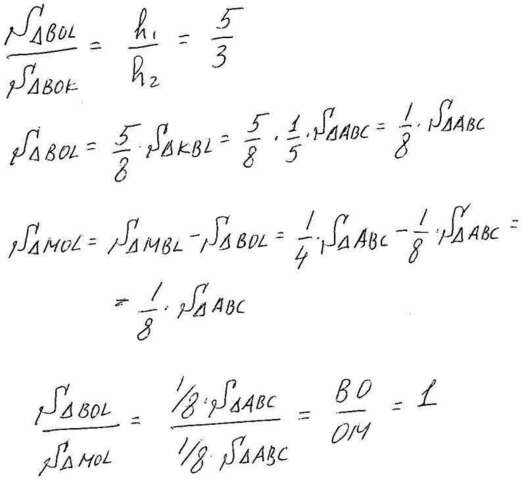 S△BOL / S△BOK = h₁ / h₂ = 5/3
S△BOL = 5/8 · S△KBL = 5/8 · 1/5 · S△ABC = 1/8 · S△ABC
S△MOL = S△MBL - S△BOL = 1/4 · S△ABC - 1/8 · S△ABC =
= 1/8 · S△ABC
S△BOL / S△MOL = 1/8 · S△ABC / 1/8 · S△ABC = BO / OM = 1